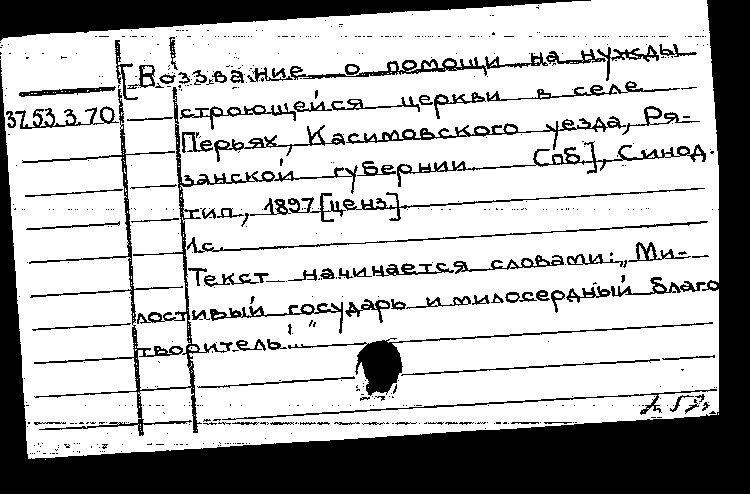 [Воззвание о помощи на нужды
37.53.3.70 строющейся церкви в селе
Перьях, Касимовского уезда, Ря-
занской губернии. Спб.], Синод.
тип., 1897 [ценз.].
1 с.
Текст начинается словами: „Ми-
лостивый государь и милосердный благо
творитель!..."